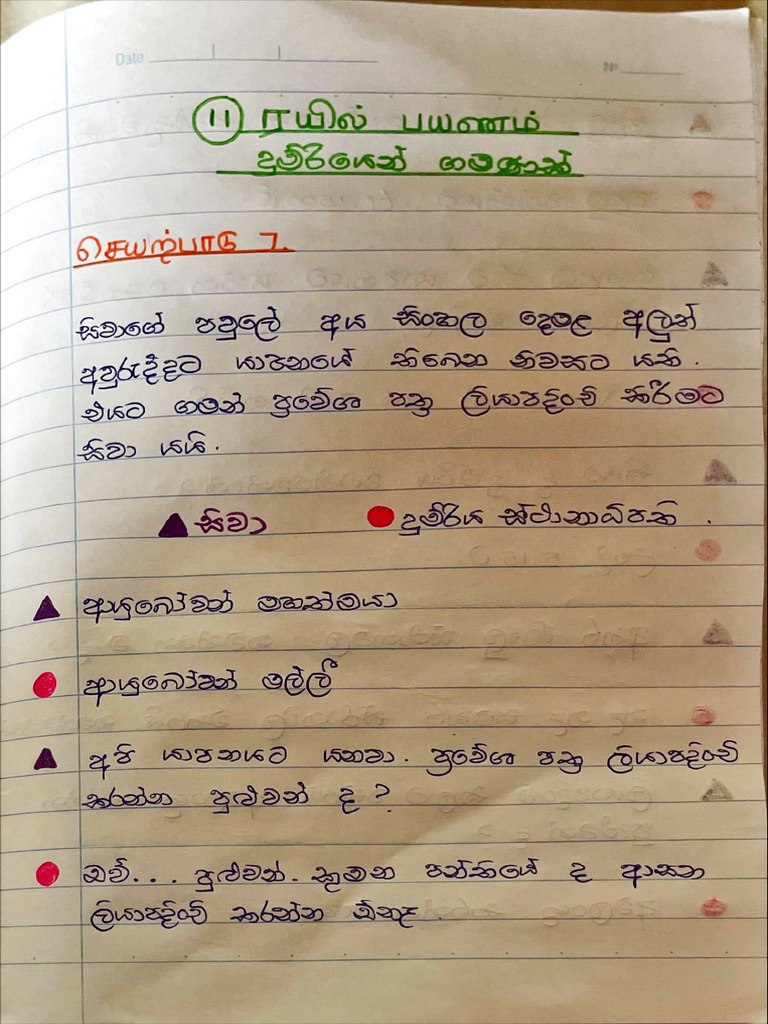 Date
No
11 ரயில் பயணம்
දුම්රියෙන් ගමණක්
செயற்பாடு 7.
සිවාගේ පවුලේ අය සිංහල දෙමළ අලුත්
අවුරුද්දට යාපනයේ තිබෙන නිවසට යති.
එයට ගමන් ප්‍රවේශ පත්‍ර ලියාපදිංචි කිරීමට
සිවා යයි.
▲ සිවා ● දුම්රිය ස්ථානාධිපති .
▲ ආයුබෝවන් මහත්මයා
● ආයුබෝවන් මල්ලී
▲ අපි යාපනයට යනවා. ප්‍රවේශ පත්‍ර ලියාපදිංචි
කරන්න පුළුවන් ද ?
● ඔව්... පුළුවන්. කුමන පන්තියේ ද ආසන
ලියාපදිංචි කරන්න ඕනෑ .